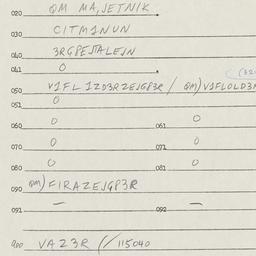 020 QM MAJETNIK
030 CITM1NUN
040 3RGPEJTALEJN
041 0
050 V1FL1ZD3RZEJGP3R / QM)V1FLOLD3
051 0
060 0 061 0
070 0 071 0
080 0 081 0
090 QM)FIRAZEJGP3R
091 — 092 —
900 VAZ3R (/115040